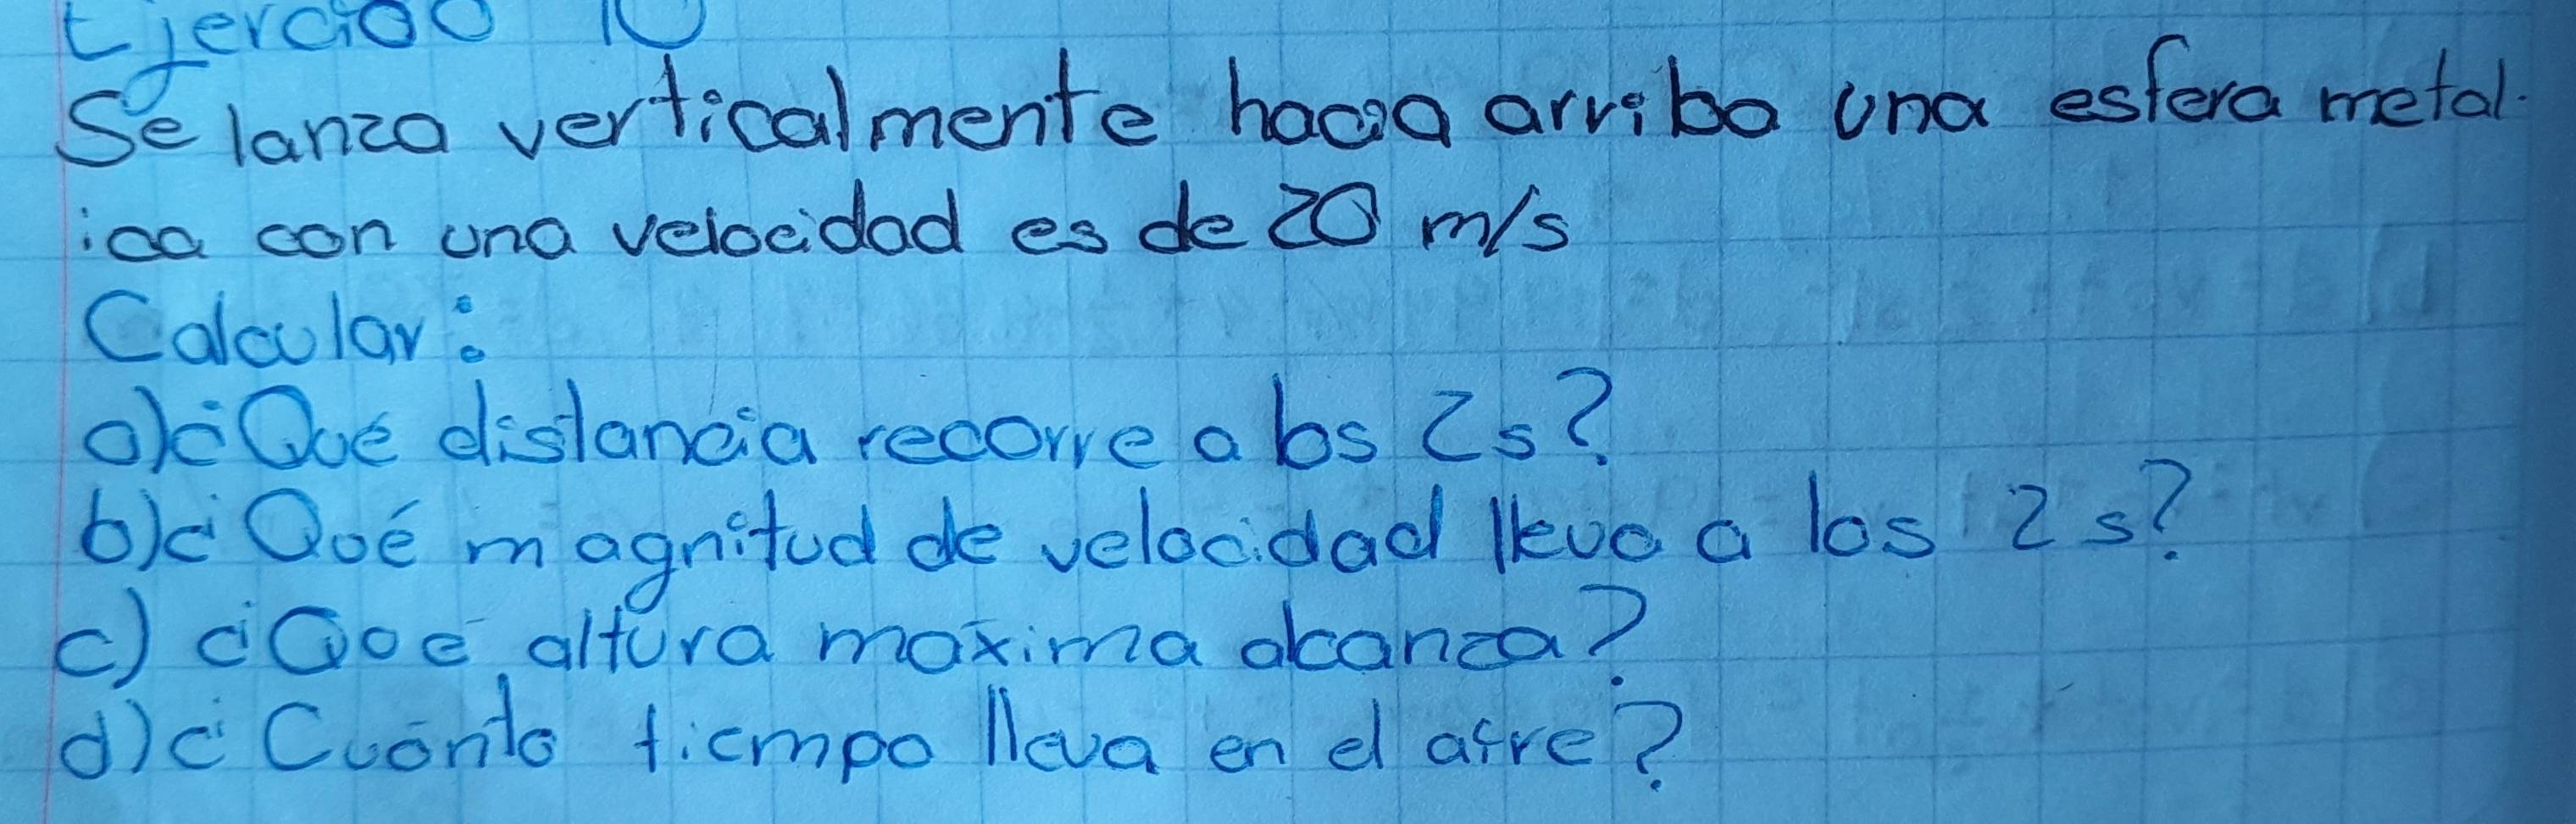 Ejercicio 10
Se lanza verticalmente hacia arriba una esfera metal-
ica con una velocidad es de 20 m/s
Calcular:
a)¿Qué distancia recorre a los 2s?
b)¿Qué magnitud de velocidad lleva a los 2s?
c) ¿Qué altura maxima alcanza?
d)¿Cuánto tiempo lleva en el aire?